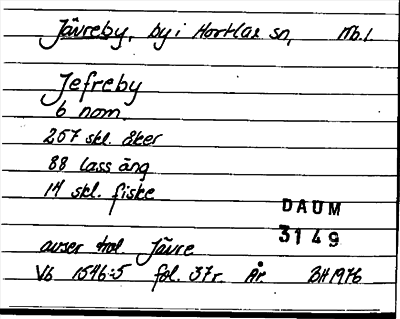 Jävreby, by i Hortlax sn, Nb.l.
Jefreby
6 nom.
257 skl. åker
88 lass äng
14 skl. fiske
DAUM
3149
avser trol. Jävre
Vb 1546:5 fol. 37r. Är. BH 1976